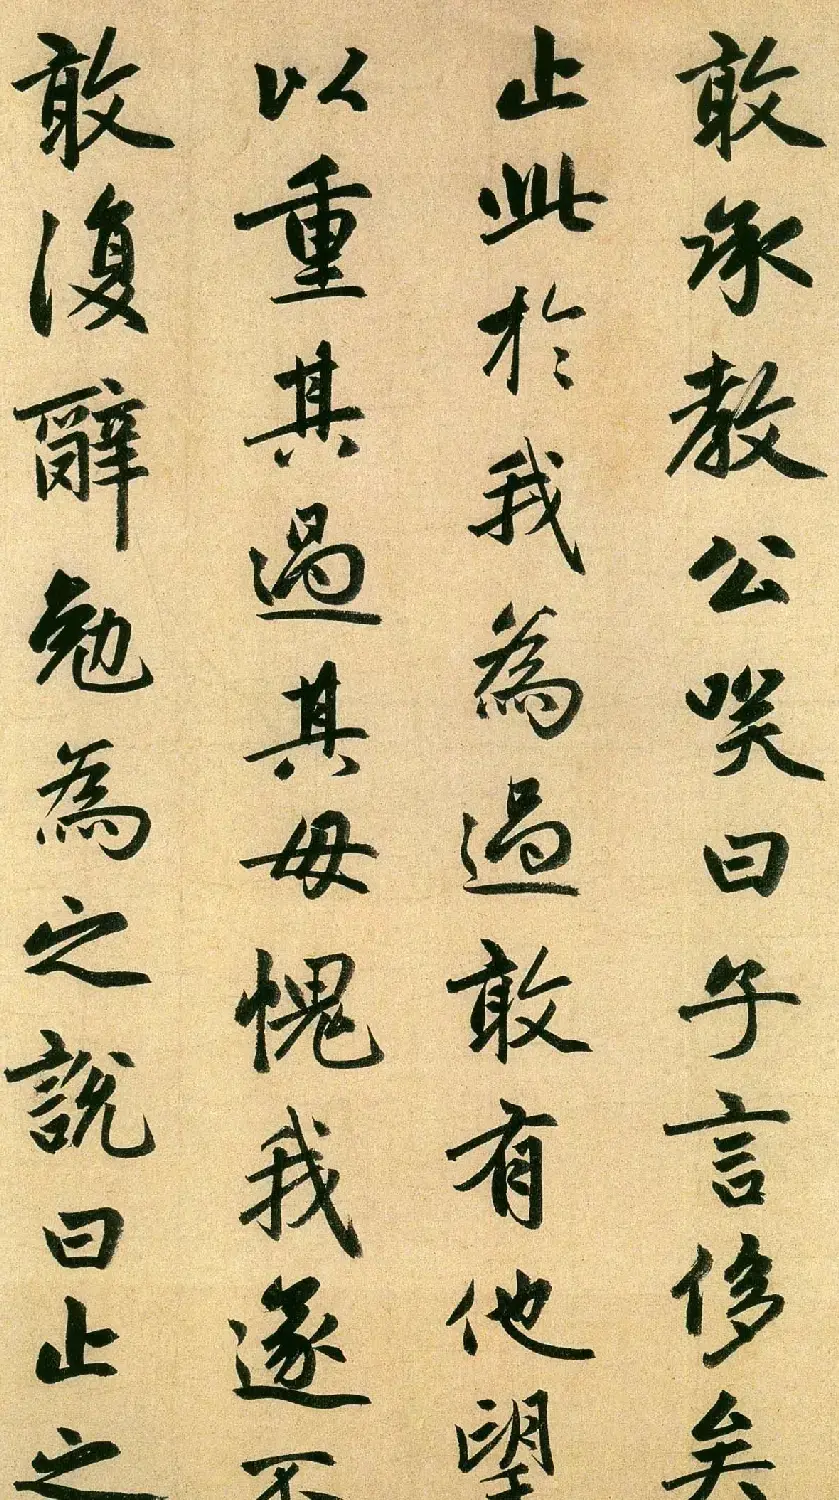 敢承教公笑曰子言侈矣
止此於我為過敢有他望
以重其過其毋愧我遂不
敢復辭勉為之說曰止之